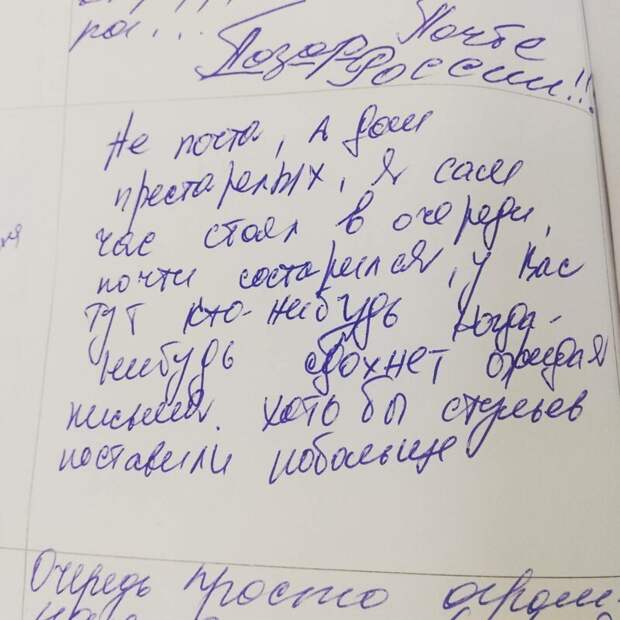 ра...
Позор Почте
России!!!
Не почта, а дом
престарелых, я сам
час стоял в очереди,
почти состарился, у вас
тут кто-нибудь когда-
нибудь сдохнет ожидая
письма. хотя бы стульев
поставили побольше
Очередь просто огром-